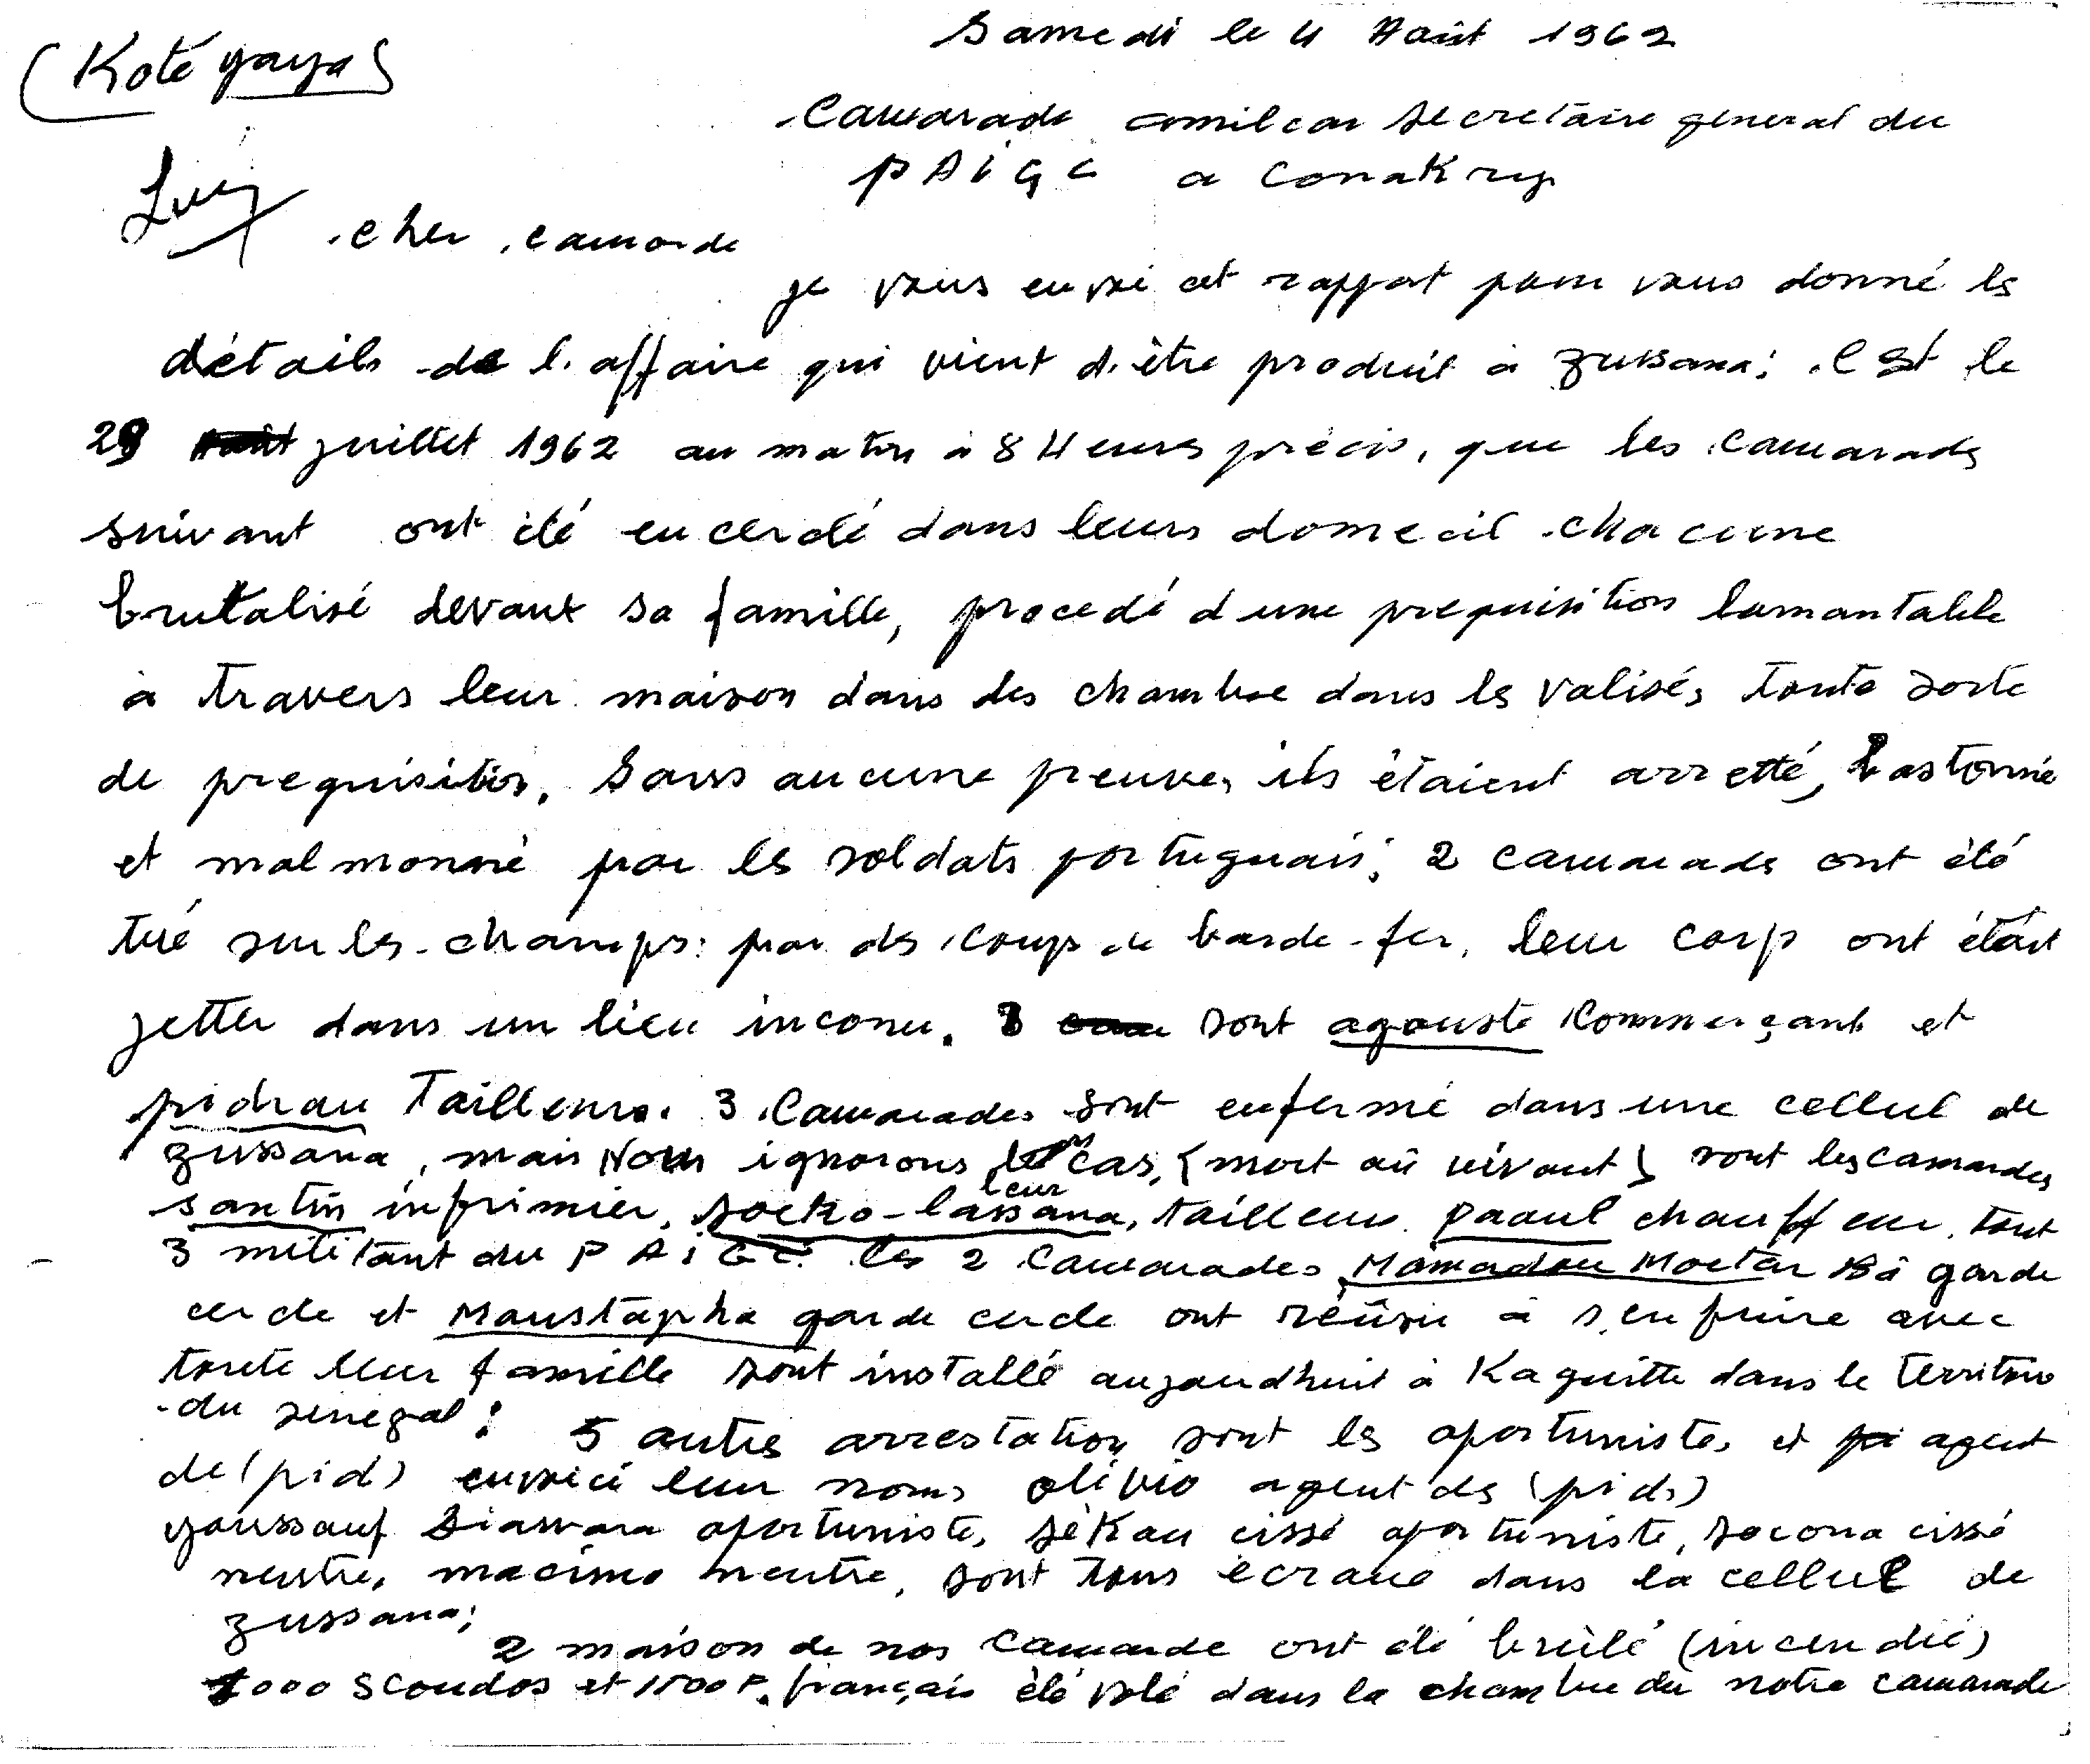 Samedi le 4 Août 1962
(Koté yaya)
Camarade amilcar secretaire general du
PAIGC a Conakry
Luy
cher camarde
je vous envoi cet rapport pour vous donné ls
détails de l'affaire qui vient d'être produit à zussana; C'est le
29 juillet 1962 au matin à 8 Heures précis, que les camarads
suivant ont été encerclé dans leurs domecil chacune
brutalisé devant sa famille, procedé d'une prequisition lamantable
à travers leur maison dans les chambre dans ls valises, toute sorte
de prequisition. Sans aucune preuve, ils étaient arretté, bastonné
et malmonné par ls soldats portuguais; 2 camarads ont été
tué sur ls champs: par ds coups de barde-fer, leur corp ont étaít
jetter dans un lieu inconu. sont agouste commerçant et
pidrau Tailleurs. 3 camarades sont enfermé dans une cellul de
zussana, mais Nous ignorons leur cas, (mort aû vivant) sont les camardes
santin infirmier, socko-lassana, tailleur. paoul chauffeur. tout
3 militant du PAIGC. les 2 camarades Mamadou Moctar Bâ garde
cercle et Moustapha garde cercle ont réüssi à s'enfuire avec
toute leur famille sont installé aujourdhuit à Kaguitte dans le Territoire
du senegal; 5 autres arrestation sont ls oportuniste, et agent
de (pid) envoici leur noms olivio agent ds (pid)
youssouf Diawara oportuniste, sékou cissé oportuniste, socona cissé
neutre, macimo neutre, sont tous écroué dans la cellule de
zussana;
2 maison de nos camarde ont été brulé (incendié)
1000 scoudos et 1500 F. français été volé dans la chambre du notre camarade